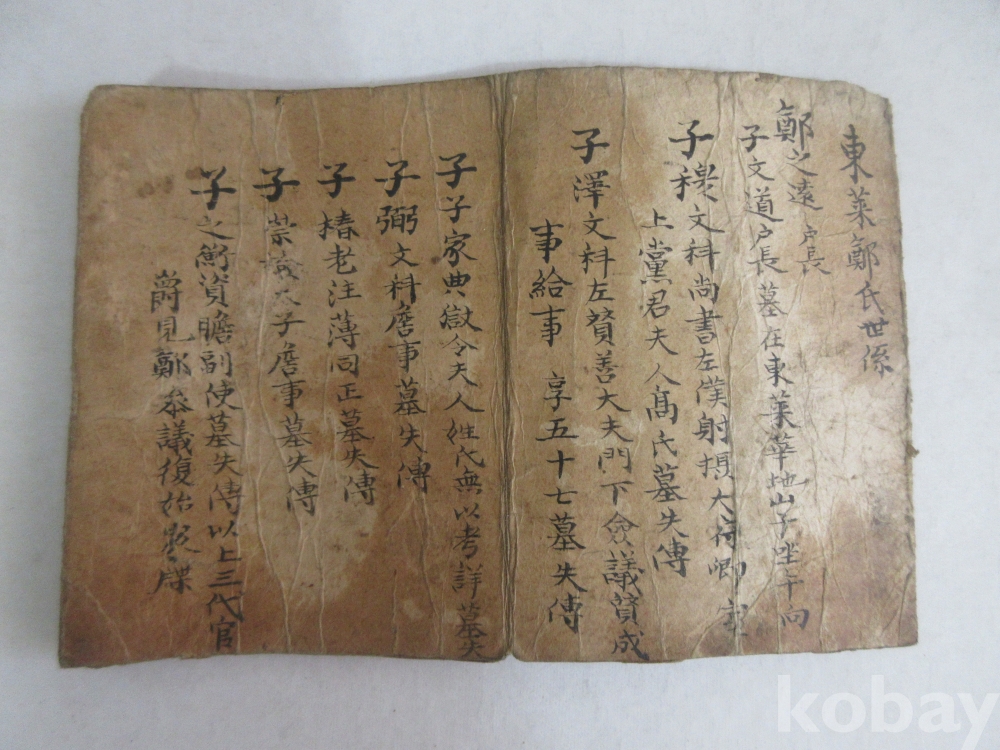 東萊鄭氏世係
鄭之遠戶長
子文道戶長墓在東萊華池山子坐午向
子穆文科尚書左僕射摄大府卿
上黨君夫人高氏墓失傳
子澤文科左賛善大夫門下僉議賛成
事給事 享五十七墓失傳
子子家典獄令夫人姓氏無以考詳墓失
子弼文科詹事墓失傳
子椿老注薄同正墓失傳
子崇 太子詹事墓失傳
子之衡資瞻副使墓失傳以上三代官
爵見鄭叅議復始家牒
kobay